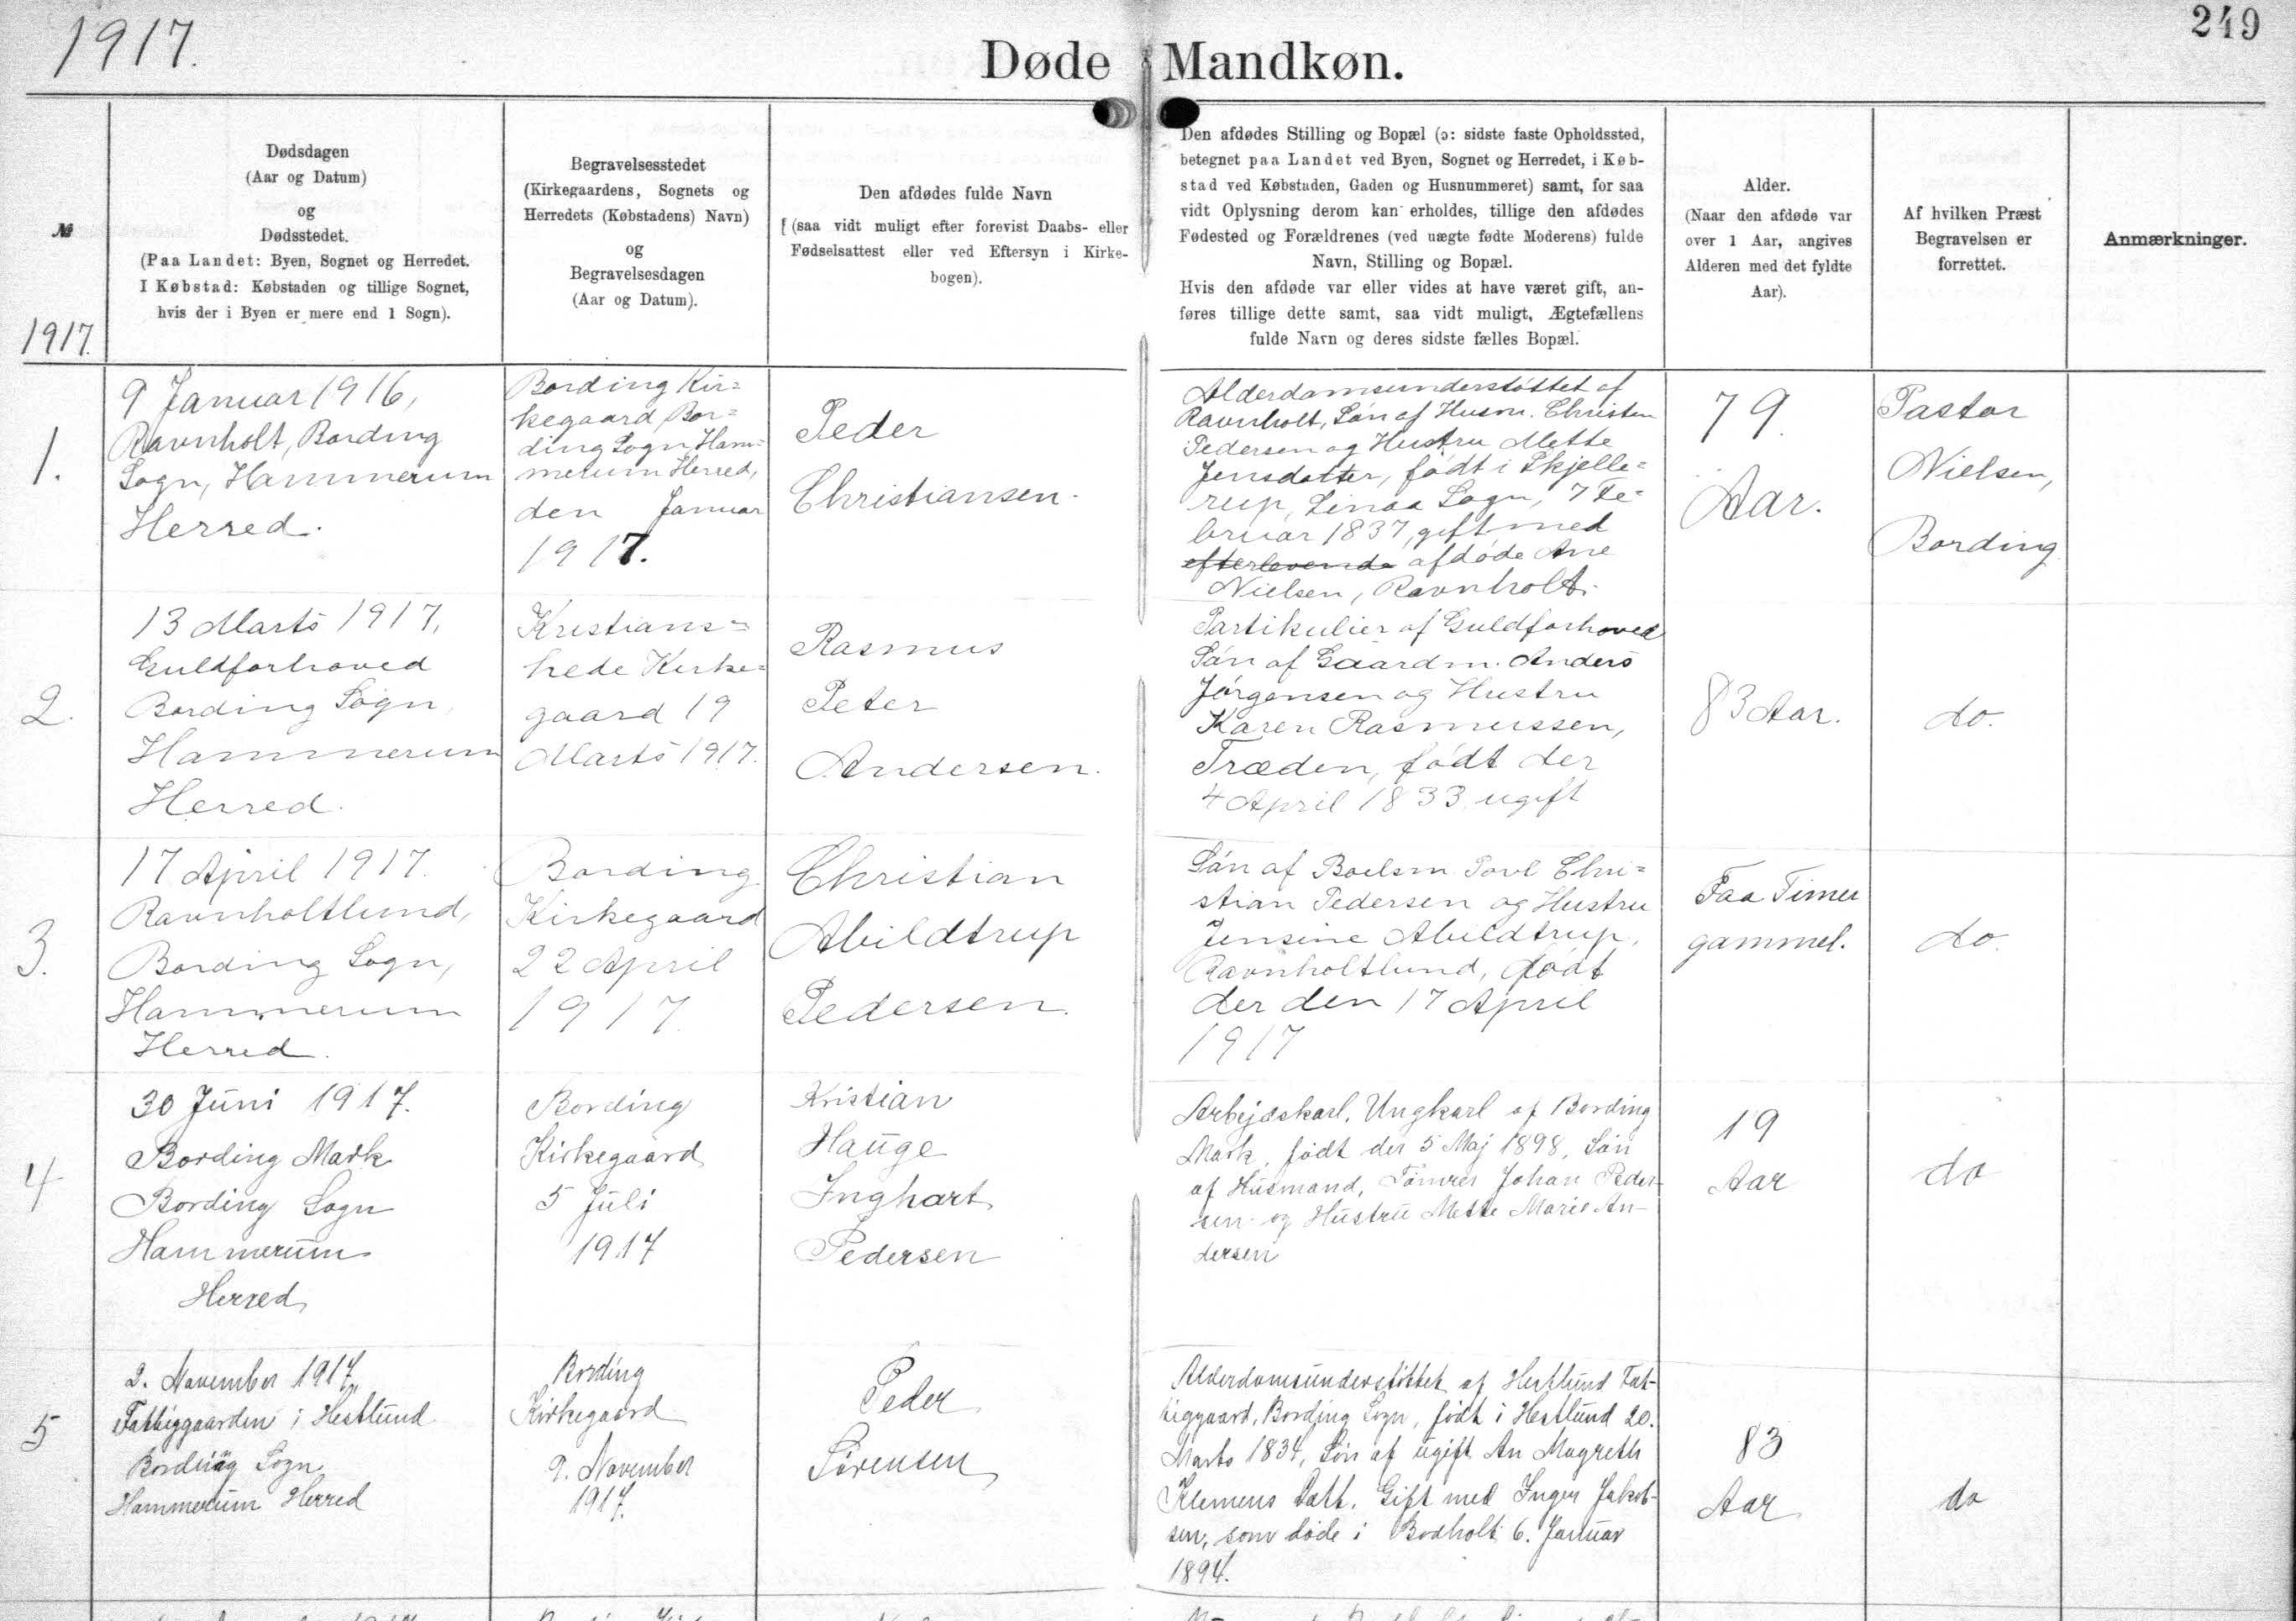 1917.
249
Døde Mandkøn.
№
1917.
Dødsdagen
(Aar og Datum)
og
Dødsstedet.
(Paa Landet: Byen, Sognet og Herredet.
I Købstad: Købstaden og tillige Sognet,
hvis der i Byen er mere end 1 Sogn).
Begravelsesstedet
(Kirkegaardens, Sognets og
Herredets (Købstadens) Navn)
og
Begravelsesdagen
(Aar og Datum).
Den afdødes fulde Navn
(saa vidt muligt efter forevist Daabs- eller
Fødselsattest eller ved Eftersyn i Kirke-
bogen).
Den afdødes Stilling og Bopæl (ɔ: sidste faste Opholdssted,
betegnet paa Landet ved Byen, Sognet og Herredet, i Køb-
stad ved Købstaden, Gaden og Husnummeret) samt, for saa
vidt Oplysning derom kan erholdes, tillige den afdødes
Fødested og Forældrenes (ved uægte fødte Moderens) fulde
Navn, Stilling og Bopæl.
Hvis den afdøde var eller vides at have været gift, an-
føres tillige dette samt, saa vidt muligt, Ægtefællens
fulde Navn og deres sidste fælles Bopæl.
Alder.
(Naar den afdøde var
over 1 Aar, angives
Alderen med det fyldte
Aar).
Af hvilken Præst
Begravelsen er
forrettet.
Anmærkninger.
1.
9 Januar 1916,
Ravnholt, Bording
Sogn, Hammerum
Herred.
Bording Kir=
kegaard, Bor=
ding Sogn, Ham=
merum Herred,
den Januar
1917.
Peder
Christiansen.
Alderdomsunderstøttet af
Ravnholt, Søn af Husm. Christen
Pedersen og Hustru Mette
Jensdatter, født i Skjelle=
rup, Linaa Sogn, 7 Fe=
bruar 1837, gift med
efterlevende afdøde Ane
Nielsen, Ravnholt.
79
Aar.
Pastor
Nielsen,
Bording
2.
13 Marts 1917,
Guldforhoved
Bording Sogn,
Hammerum
Herred.
Kristians=
hede Kirke=
gaard 19
Marts 1917.
Rasmus
Peter
Andersen.
Partikulier af Guldforhoved
Søn af Gaardm. Anders
Jørgensen og Hustru
Karen Rasmussen,
Træden, født der
4 April 1833. ugift
83 Aar.
do.
3.
17 April 1917.
Ravnholtlund,
Bording Sogn,
Hammerum
Herred.
Bording
Kirkegaard
22 April
1917.
Christian
Abildtrup
Pedersen.
Søn af Boelsm Povl Chri=
stian Pedersen og Hustru
Jensine Abildtrup,
Ravnholtlund, født
der den 17 April
1917
Faa Timer
gammel.
do.
4
30 Juni 1917.
Bording Mark
Bording Sogn
Hammerum
Herred
Bording
Kirkegaard
5 Juli
1917
Kristian
Hauge
Inghart
Pedersen
Arbejdskarl, Ungkarl af Bording
Mark, født der 5 Maj 1898, Søn
af Husmand, Tømrer Johan Peder-
sen og Hustru Mette Marie An-
dersen
19
Aar
do
5
2. November 1917,
Fattiggaarden i Hestlund
Bording Sogn
Hammerum Herred
Bording
Kirkegaard
9. November
1917.
Peder
Sørensen
Alderdomsunderstøttet af Hestlund Fat-
tiggaard, Bording Sogn, født i Hestlund 20.
Marts 1834, Søn af ugift An Magreth
Klemens Datt. Gift med Inger Jakob-
sen, som døde i Bodholt 6. Januar
1894.
83
Aar
do